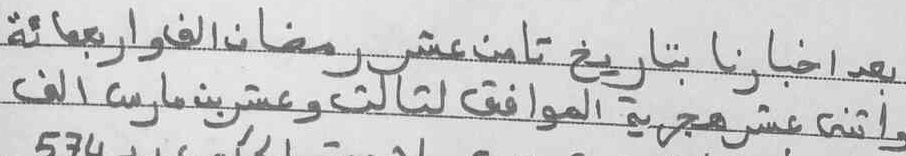 بعد اخبارنا بتاريخ تامن عشر رمضان الف واربعمائة
واتنى عشر هجرية الموافق لتالت وعشرين مارس الف
574